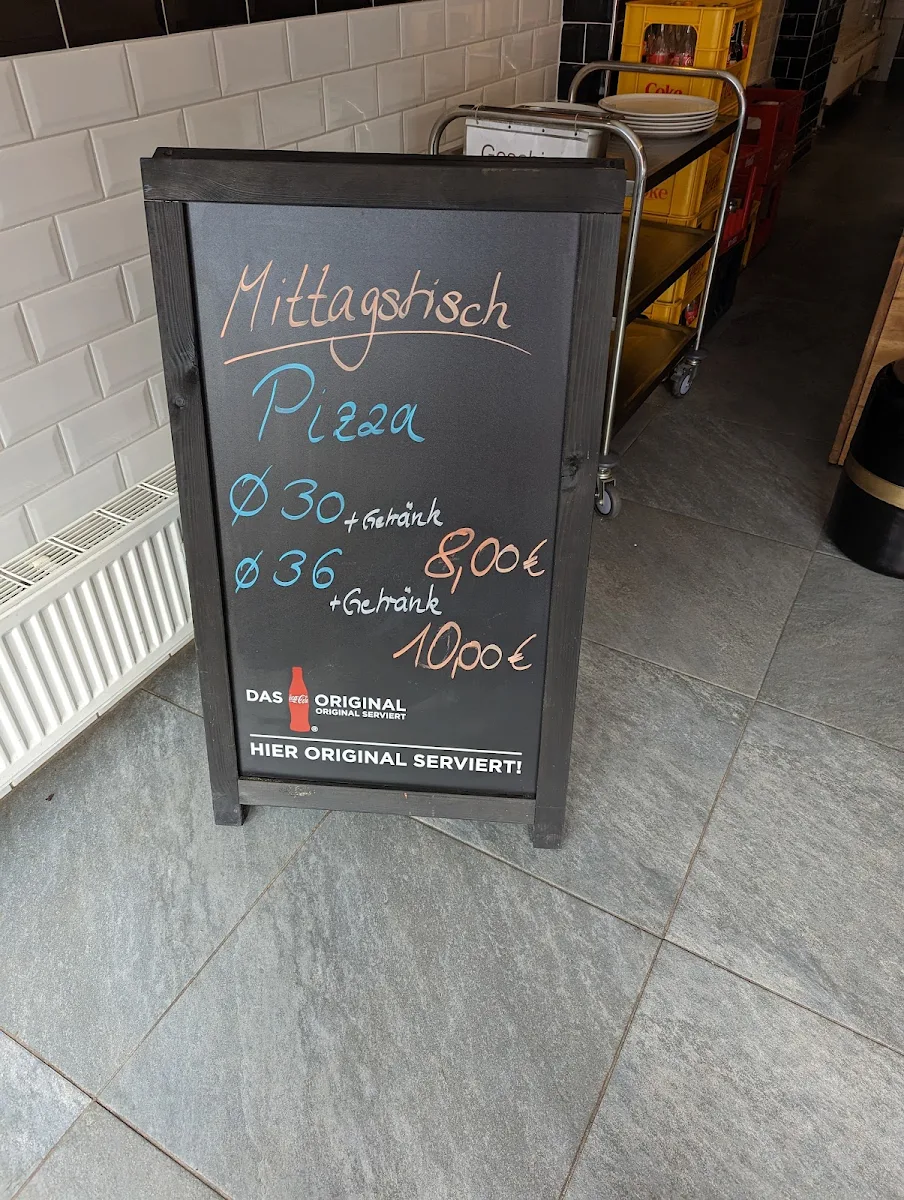 Mittagstisch
Pizza
Ø 30 + Getränk
8,00 €
Ø 36
+ Getränk
10,00 €
DAS Coca-Cola ORIGINAL
ORIGINAL SERVIERT
HIER ORIGINAL SERVIERT!
Coke
Coke